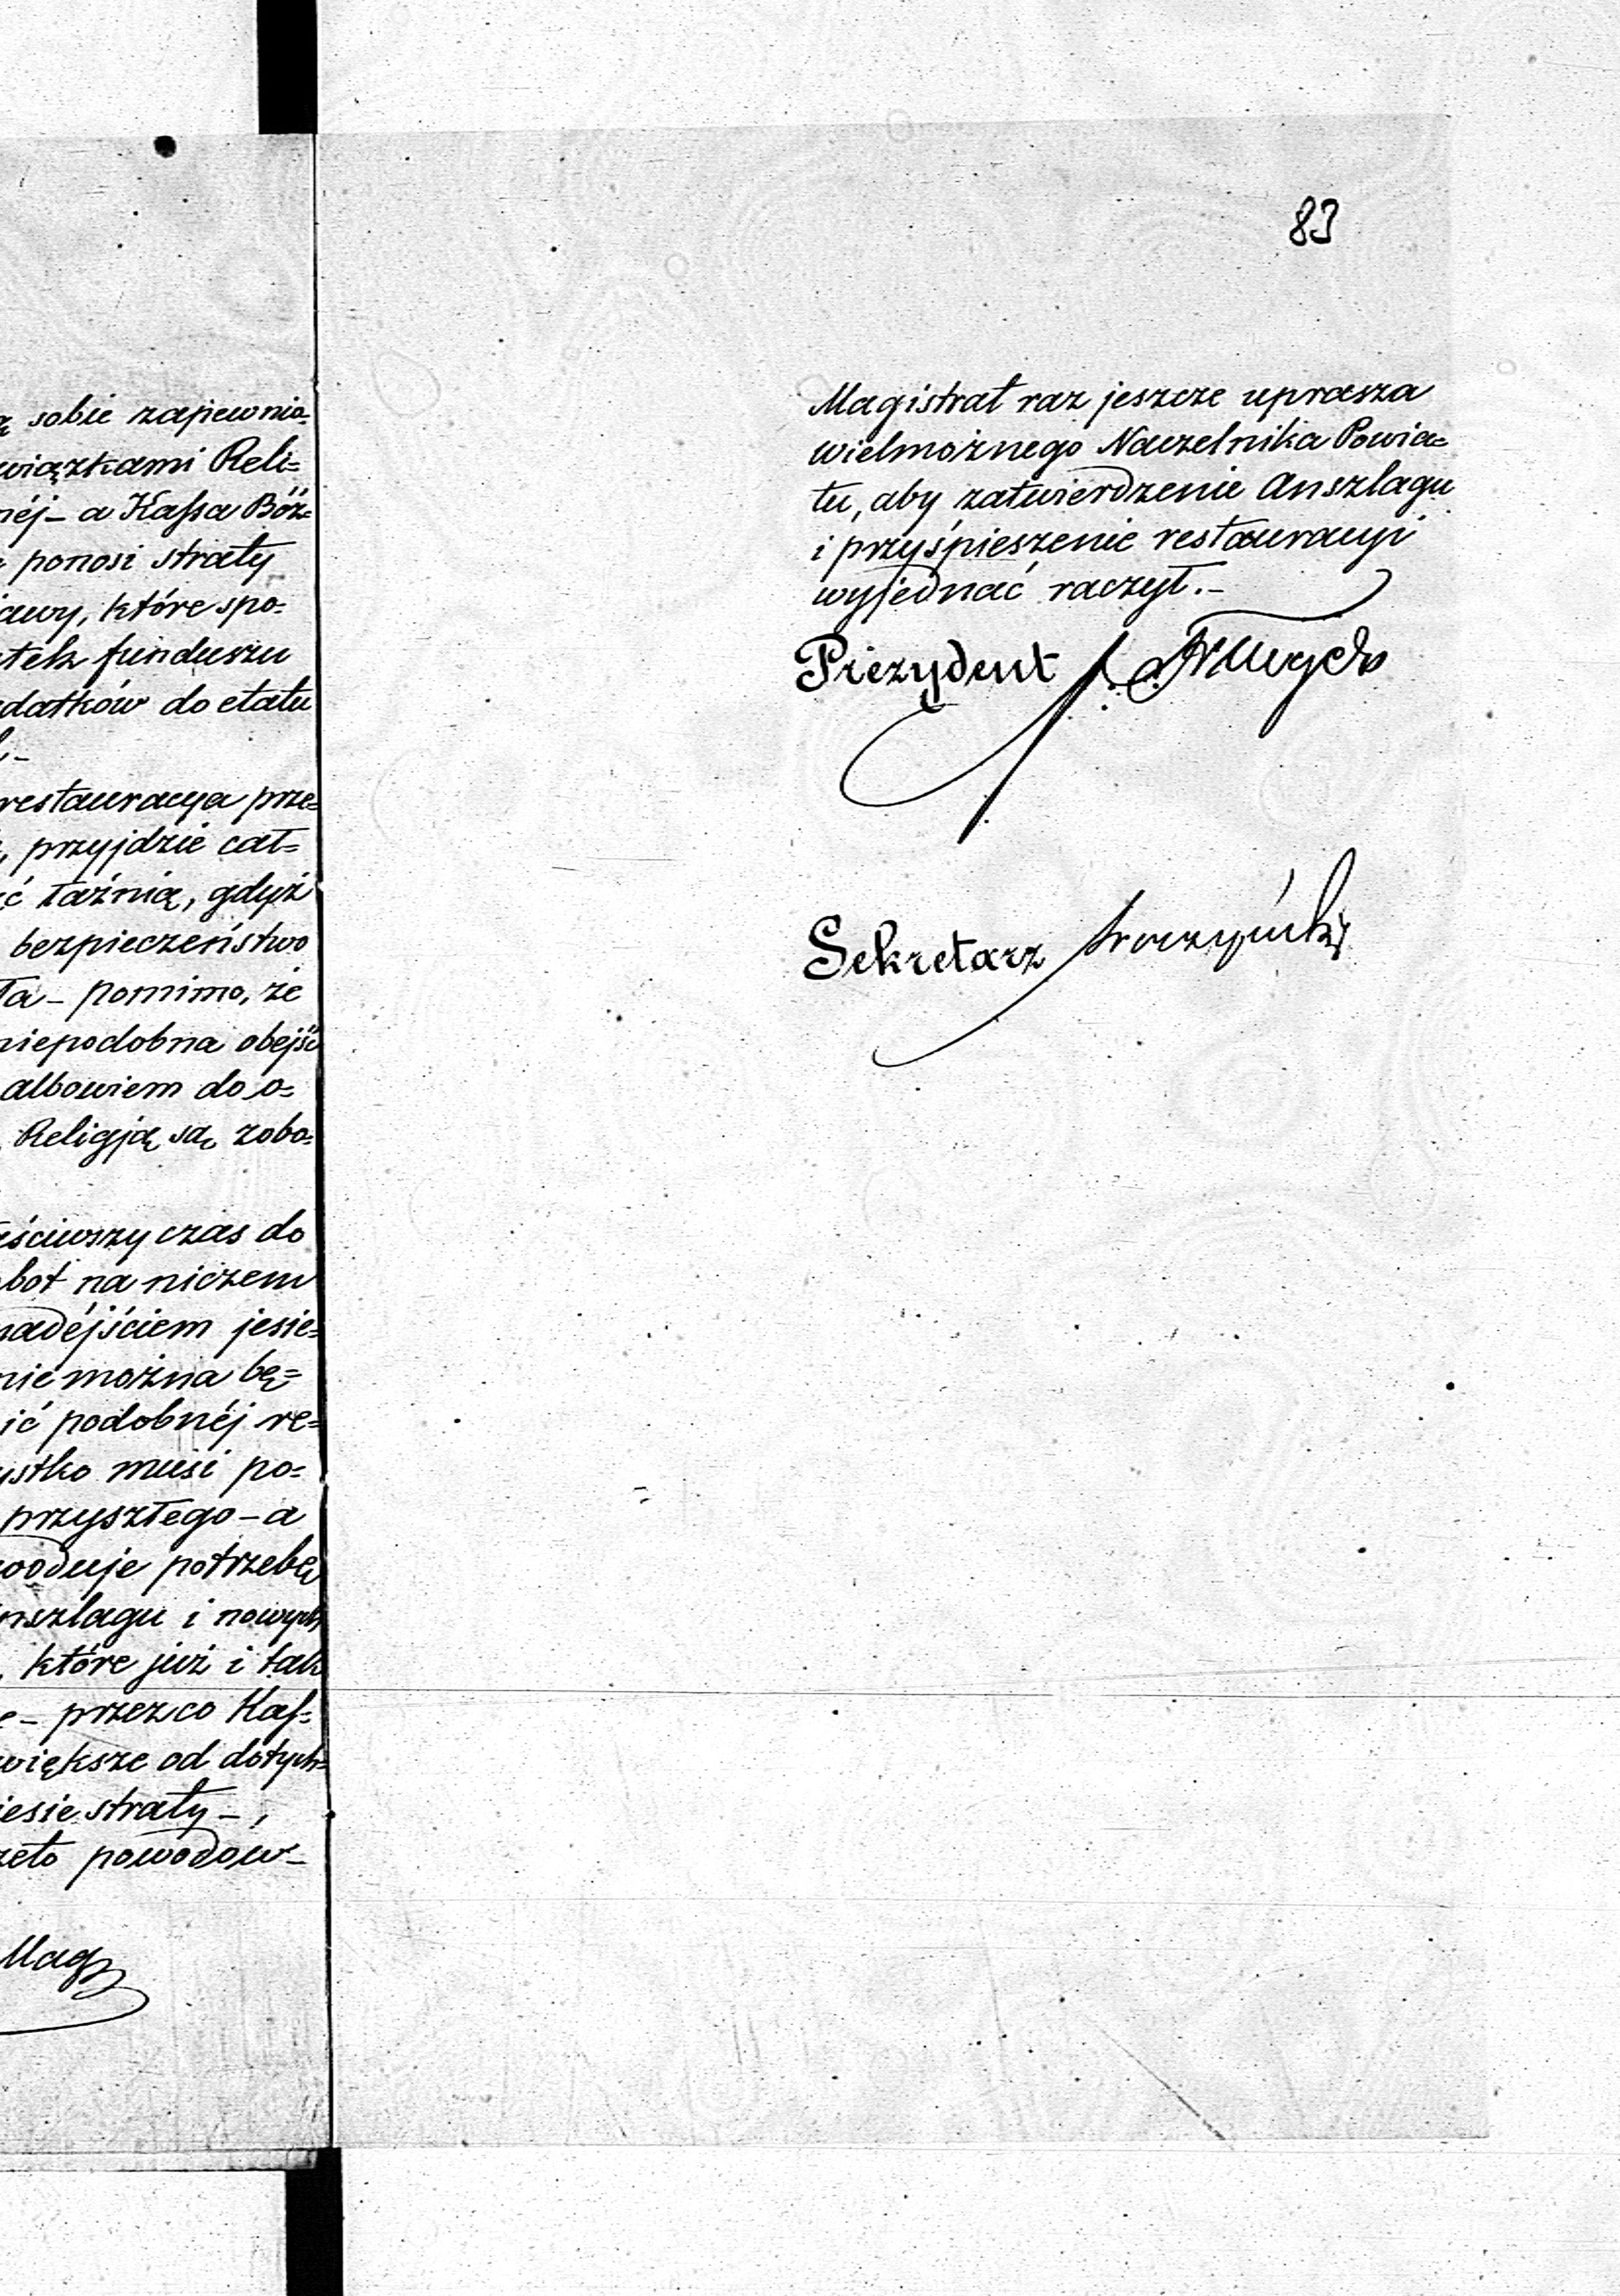 sobie zapewnia-
wiązkami Reli=
néj – a Kassa Bóż=
ponosi straty
które spo-
funduszu
datków do etatu
restauracya prze=
przyjdzie cał=
łaźnią, gdyż
bezpieczeństwo
ła – pomimo, że
niepodobna obejść
albowiem do o=
Religją są zobo-
ściwszy czas do
bot na niczem
nadéjściem jesie=
nie można bę=
ić podobnéj re=
ystko musi po=
przyszłego – a
woduje potrzebę
nszlagu i nowych
które już i tak
– przez co Kas=
większe od dotych=
iesie straty –,
powodów –
Mag
83
Magistrat raz jeszcze uprasza
wielmożnego Naczelnika Powia=
tu, aby zatwierdzenie Anszlagu
i przyśpieszenie restauracyi
wyjednać raczył. –
Prezydent
Sekretarz